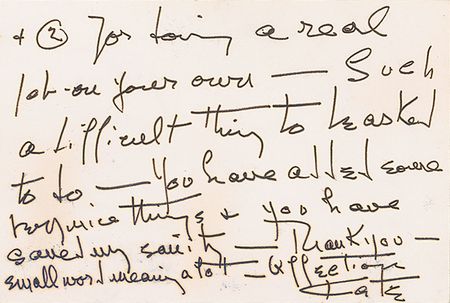 + ② For doing a real
job on your own — Such
a difficult thing to be asked
to do — You have added some
very nice things + you have
saved my sanity — Thank you —
small word meaning a lot — Affection
Kate